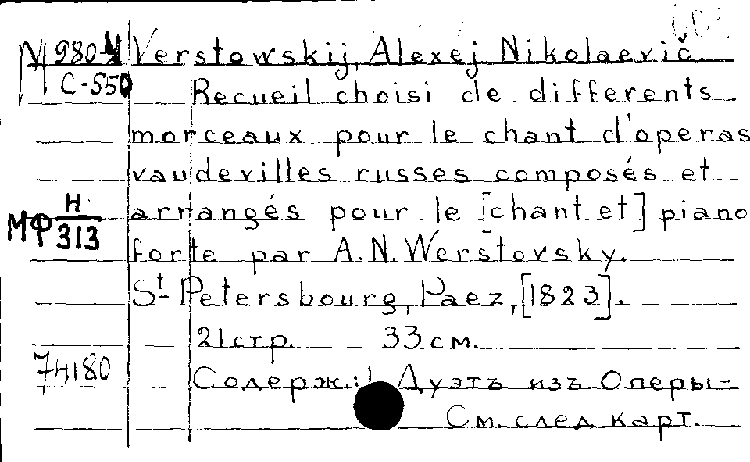 Verstowskij, Alexej Nikolaevič
С-550
Recueil choisi de differents
morceaux pour le chant d'operas
vaudevilles russes composés et
arrangés pour le [chant et] piano
МФ Н/313
forte par A.N. Werstovsky.
St-Petersbourg, Paez, [1823].
21 стр. 33 см.
74180
Содерж.: 1 Дуэтъ изъ Оперы-
См. след. карт.